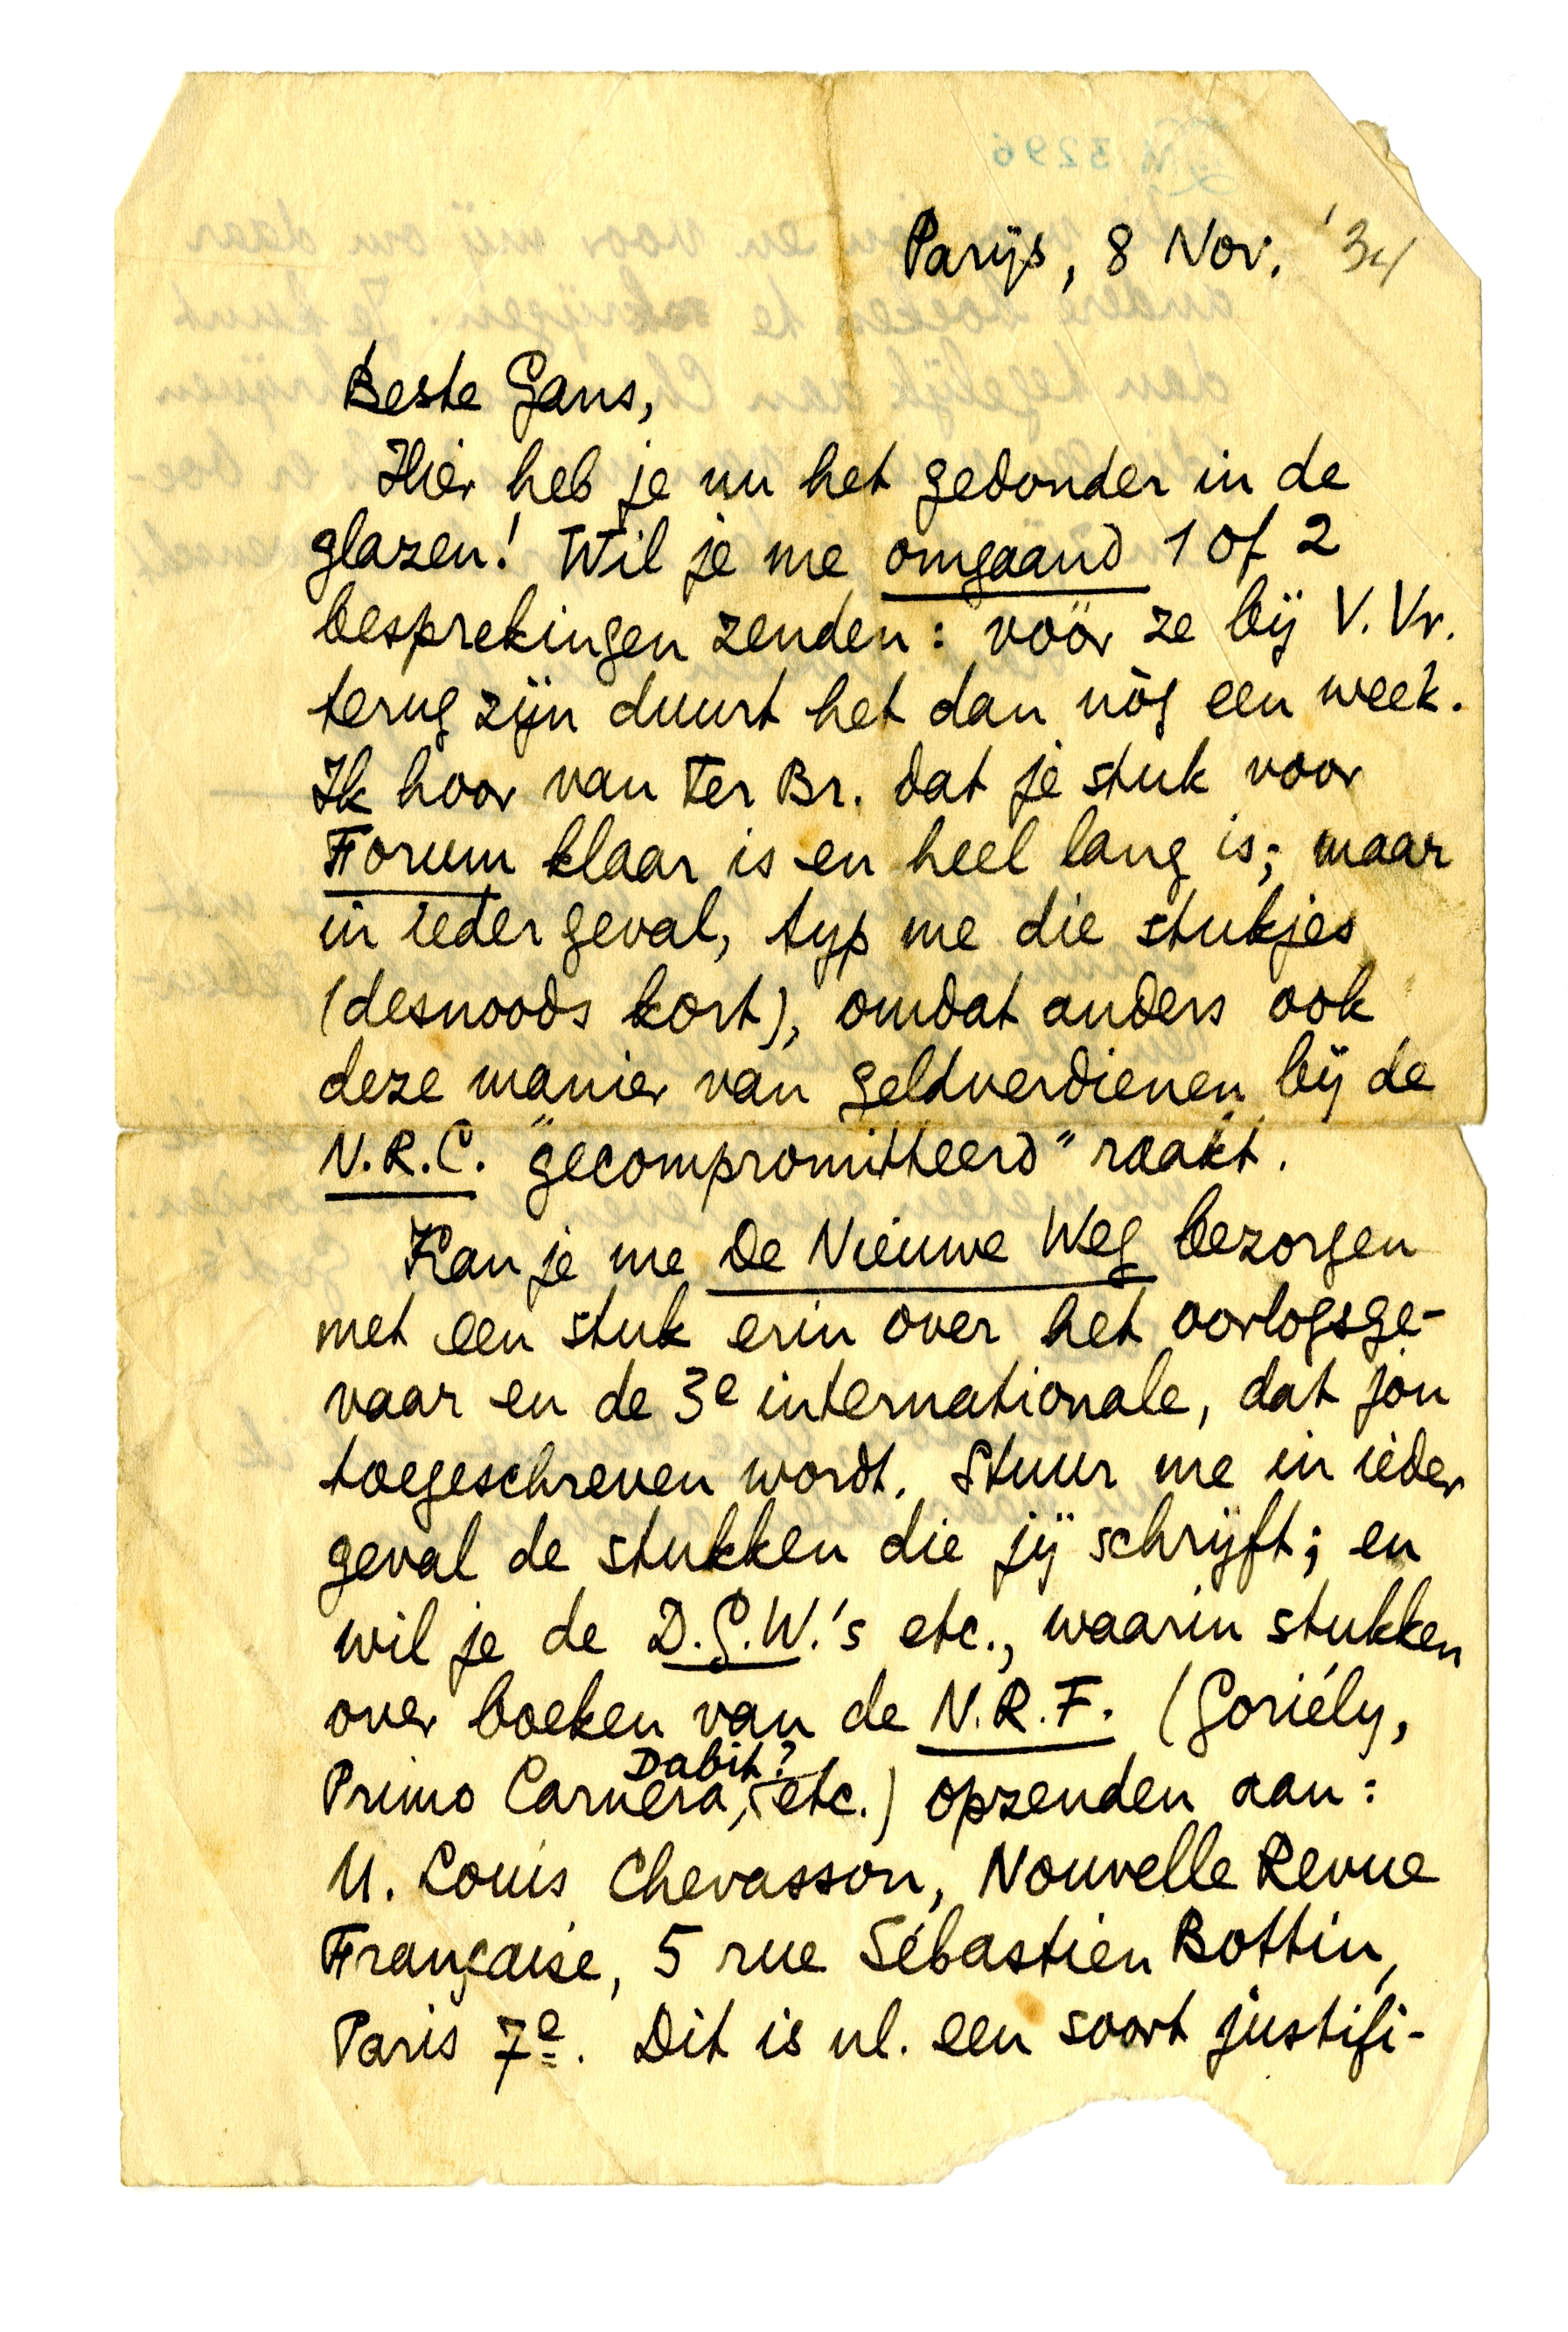 Parijs, 8 Nov. '34
Beste Gans,
Hier heb je nu het gedonder in de
glazen! Wil je me omgaand 1 of 2
besprekingen zenden: vóór ze bij V. Vr.
terug zijn duurt het dan nòg een week.
Ik hoor van Ter Br. dat je stuk voor
Forum klaar is en heel lang is; maar
in ieder geval, typ me die stukjes
(desnoods kort), omdat anders ook
deze manier van geldverdienen bij de
N.R.C. "gecompromitteerd" raakt.
Kan je me De Nieuwe Weg bezorgen
met een stuk erin over het oorlogsge-
vaar en de 3e internationale, dat jou
toegeschreven wordt. Stuur me in ieder
geval de stukken die jij schrijft; en
wil je de D.G.W.'s etc., waarin stukken
over boeken van de N.R.F. (Goriély,
Primo Carnera, Dabit? etc.) opzenden aan:
M. Louis Chevasson, Nouvelle Revue
Française, 5 rue Sébastien Bottin,
Paris 7e. Dit is nl. een soort justifi-